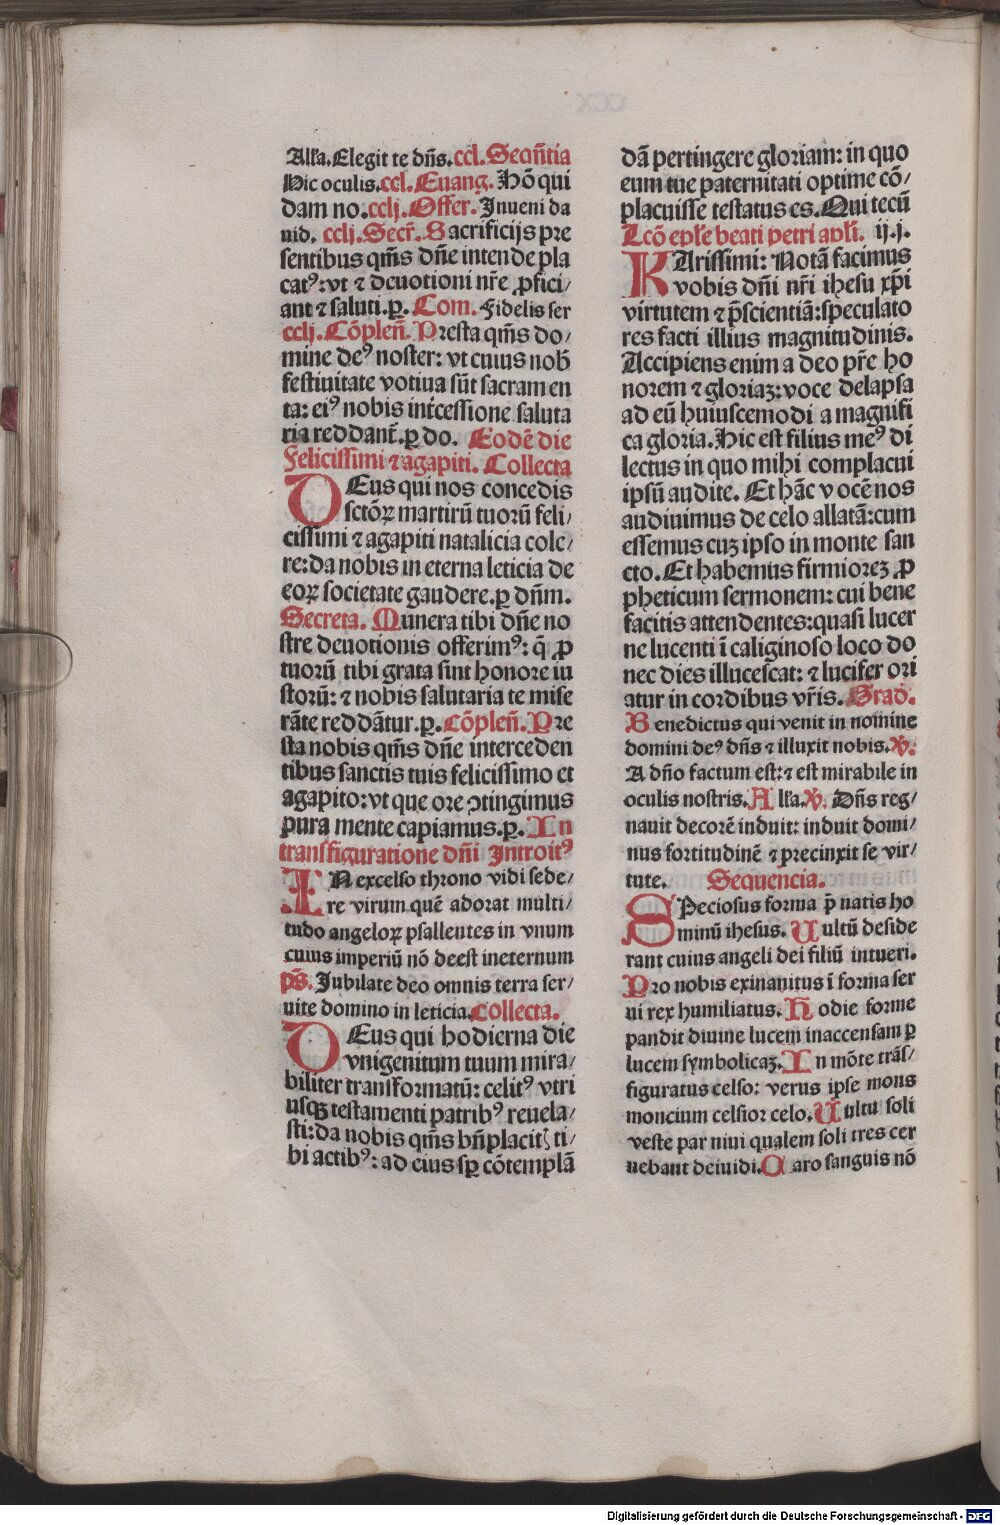 Alľa. Elegit te dñs. ccl. Seqñtia
Hic oculis. ccl. Euang. Hõ qui
dam no. cclj. Offer. Inueni da
uid. cclj. Secr̃. Sacrificijs pre
sentibus qm̃s dñe intende pla
catꝰ: vt ⁊ deuotioni nr̃e ꝓfici/
ant ⁊ saluti. ꝑ. Com. Fidelis ser
cclj. Cõpleñ. Presta qm̃s do/
mine deꝰ noster: vt cuius nob̃
festiuitate votiua sũt sacramen
ta: eiꝰ nobis int̃cessione saluta
ria reddant̃. ꝑ do. Eodẽ die
Felicissimi ⁊ agapiti. Collecta
DEus qui nos concedis
sctõꝝ martirũ tuorũ feli/
cissimi ⁊ agapiti natalicia cole/
re: da nobis in eterna leticia de
eoꝝ societate gaudere. ꝑ dñm.
Secreta. Munera tibi dñe no
stre deuotionis offerimꝰ: q̃ ꝓ
tuorũ tibi grata sint honore iu
storũ: ⁊ nobis salutaria te mise
rãte reddãtur. ꝑ. Cõpleñ. Pre
sta nobis qm̃s dñe interceden
tibus sanctis tuis felicissimo et
agapito: vt que ore ↄtingimus
pura mente capiamus. ꝑ. In
transfiguratione dñi Introitꝰ
IN excelso throno vidi sede/
re virum quẽ adorat multi/
tudo angeloꝝ psallentes in vnum
cuius imperiũ nõ deest ineternum
ps̃. Jubilate deo omnis terra ser/
uite domino in leticia. Collecta.
DEus qui hodierna die
vnigenitum tuum mira/
biliter transformatũ: celitꝰ vtri
usqꝫ testamenti patribꝰ reuela/
sti: da nobis qm̃s bñplacitꝭ ti/
bi actibꝰ: ad eius sꝑ cõtemplã
dã pertingere gloriam: in quo
eum tue paternitati optime cõ/
placuisse testatus es. Qui tecũ
Lcõ epľe beati petri apľi. ij.j.
KArissimi: Notã facimus
vobis dñi nr̃i ihesu xp̃i
virtutem ⁊ p̃scientiã: speculato
res facti illius magnitudinis.
Accipiens enim a deo pr̃e ho
norem ⁊ gloriaꝫ: voce delapsa
ad eũ huiuscemodi a magnifi
ca gloria. Hic est filius meꝰ di
lectus in quo mihi complacui
ipsũ audite. Et hãc vocẽ nos
audiuimus de celo allatã: cum
essemus cuꝫ ipso in monte san
cto. Et habemus firmioreꝫ ꝓ
pheticum sermonem: cui bene
facitis attendentes: quasi lucer
ne lucenti ĩ caliginoso loco do
nec dies illucescat: ⁊ lucifer ori
atur in cordibus vr̃is. Grad̃.
Benedictus qui venit in nomine
domini deꝰ dñs ⁊ illuxit nobis. ℣.
A dño factum est: ⁊ est mirabile in
oculis nostris. Alľa. ℣. Dñs reg/
nauit decorẽ induit: induit domi/
nus fortitudinẽ ⁊ precinxit se vir/
tute. Sequencia.
SPeciosus forma p̃ natis ho
minũ ihesus. Uultũ deside
rant cuius angeli dei filiũ intueri.
Pro nobis exinanitus ĩ forma ser
ui rex humiliatus. Hodie forme
pandit diuine lucem inaccensam ꝑ
lucem symbolicaꝫ. In mõte trãs/
figuratus celso: verus ipse mons
moncium celsior celo. Uultu soli
veste par niui qualem soli tres cer
nebant deiuidi. Caro sanguis nõ
Digitalisierung gefördert durch die Deutsche Forschungsgemeinschaft - DFG